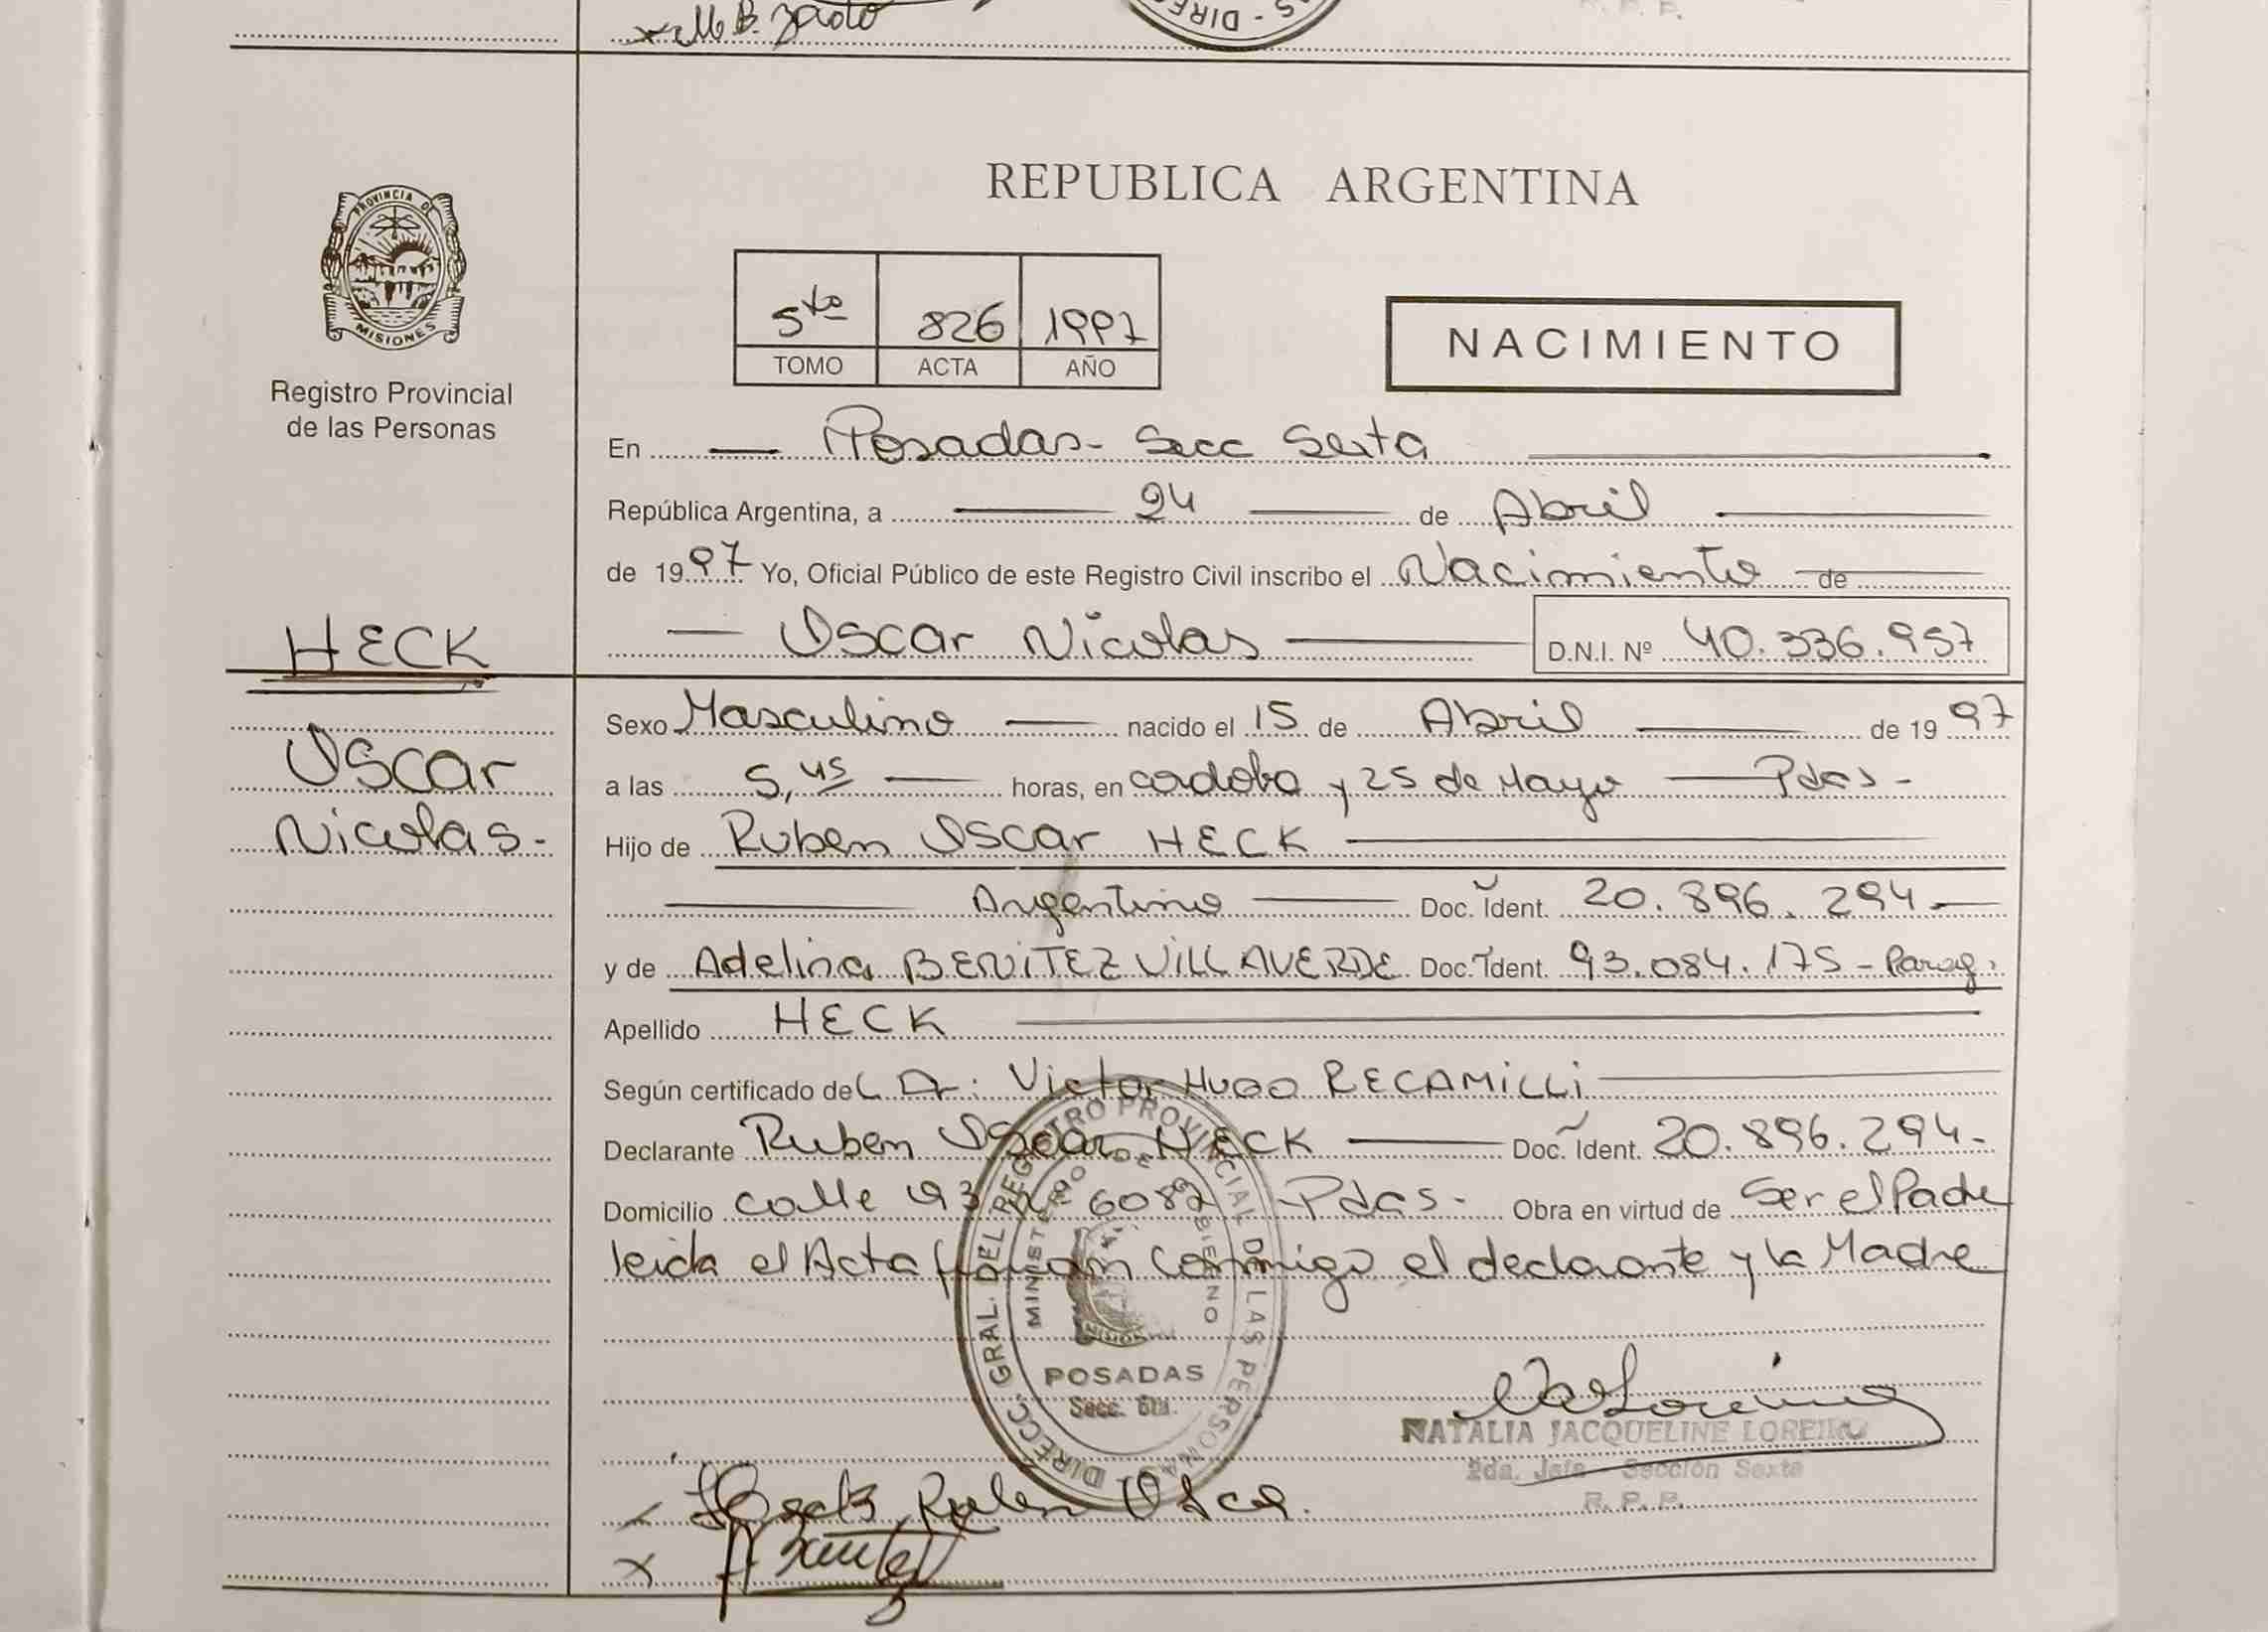 M B.
DIREC - S
R. P. P.
PROVINCIA DE
MISIONES
Registro Provincial
de las Personas
REPUBLICA ARGENTINA
5to 826 1997
TOMO ACTA AÑO
NACIMIENTO
En Posadas - Secc Sexta
República Argentina, a 24 de Abril
de 1997 Yo, Oficial Público de este Registro Civil inscribo el Nacimiento de
Oscar Nicolas D.N.I. Nº 40.336.957
HECK
Oscar
Nicolas -
Sexo Masculino nacido el 15 de Abril de 1997
a las 5,45 horas, en Cordoba y 25 de Mayo Pdas -
Hijo de Ruben Oscar HECK
Argentino Doc. Ident. 20.896.294
y de Adelina BENITEZ VILLAVERDE Doc. Ident. 93.084.175 - Parag.
Apellido HECK
Según certificado del Dr: Victor Hugo RECAMILLI
Declarante Ruben Oscar HECK Doc. Ident. 20.896.294 -
Domicilio Calle 93 Nº 6082 Pdas - Obra en virtud de Ser el Padre
leida el Acta firman conmigo el declarante y la Madre
DIRECC. GRAL. DEL REGISTRO PROVINCIAL DE LAS PERSONAS
MINISTERIO DE GOBIERNO
POSADAS
Secc. 6ta.
NATALIA JACQUELINE LOREIRO
2da. Jefa - Sección Sexta
R. P. P.
x Heck Ruben Oscar.
x